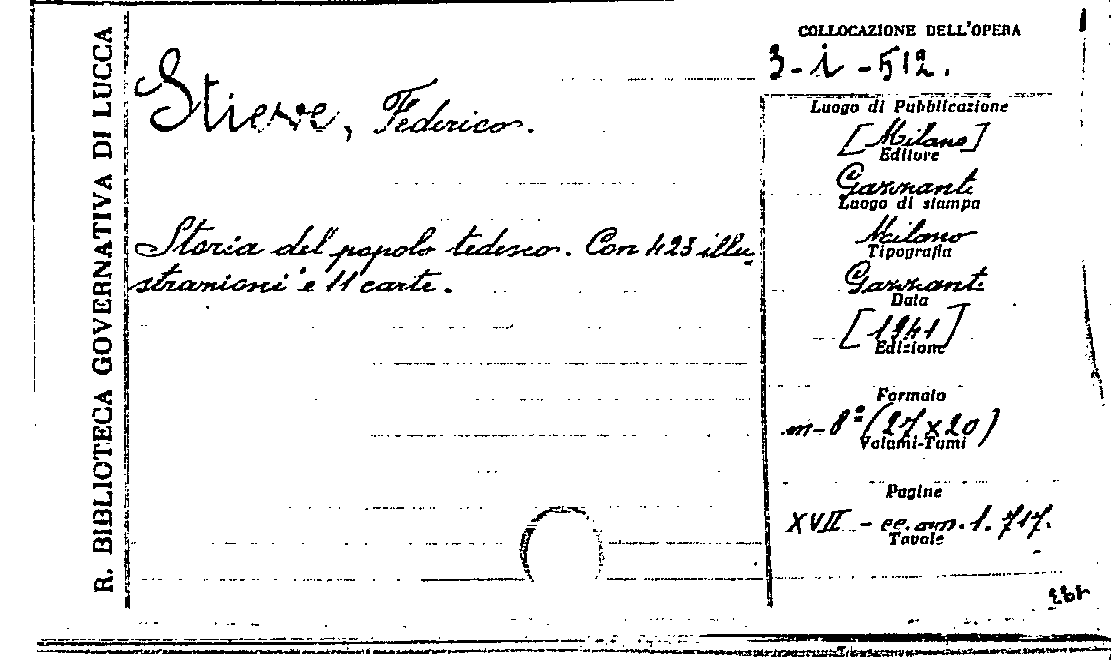 R. BIBLIOTECA GOVERNATIVA DI LUCCA
Stieve, Federico.
Storia del popolo tedesco. Con 423 illu-
strazioni e 11 carte.
COLLOCAZIONE DELL'OPERA
3-i-512.
Luogo di Pubblicazione
[Milano]
Editore
Garzanti
Luogo di stampa
Milano
Tipografia
Garzanti
Data
[1941]
Edizione
Formato
m-8º (27x20)
Volumi-Tomi
Pagine
XVII - cc. nn. 1. 717.
Tavole